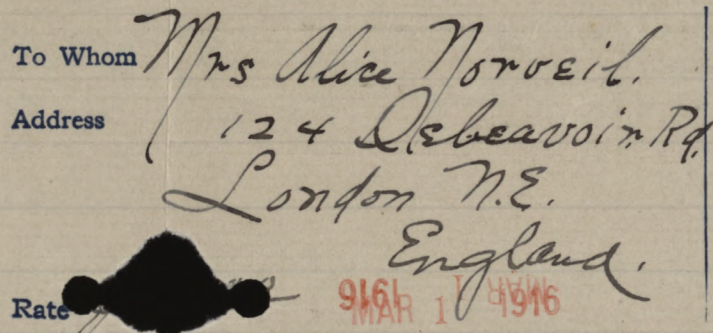 To Whom Mrs Alice Norveil.
Address 124 Debeavoir Rd.
London N.E.
England.
Rate
MAR 1 1916